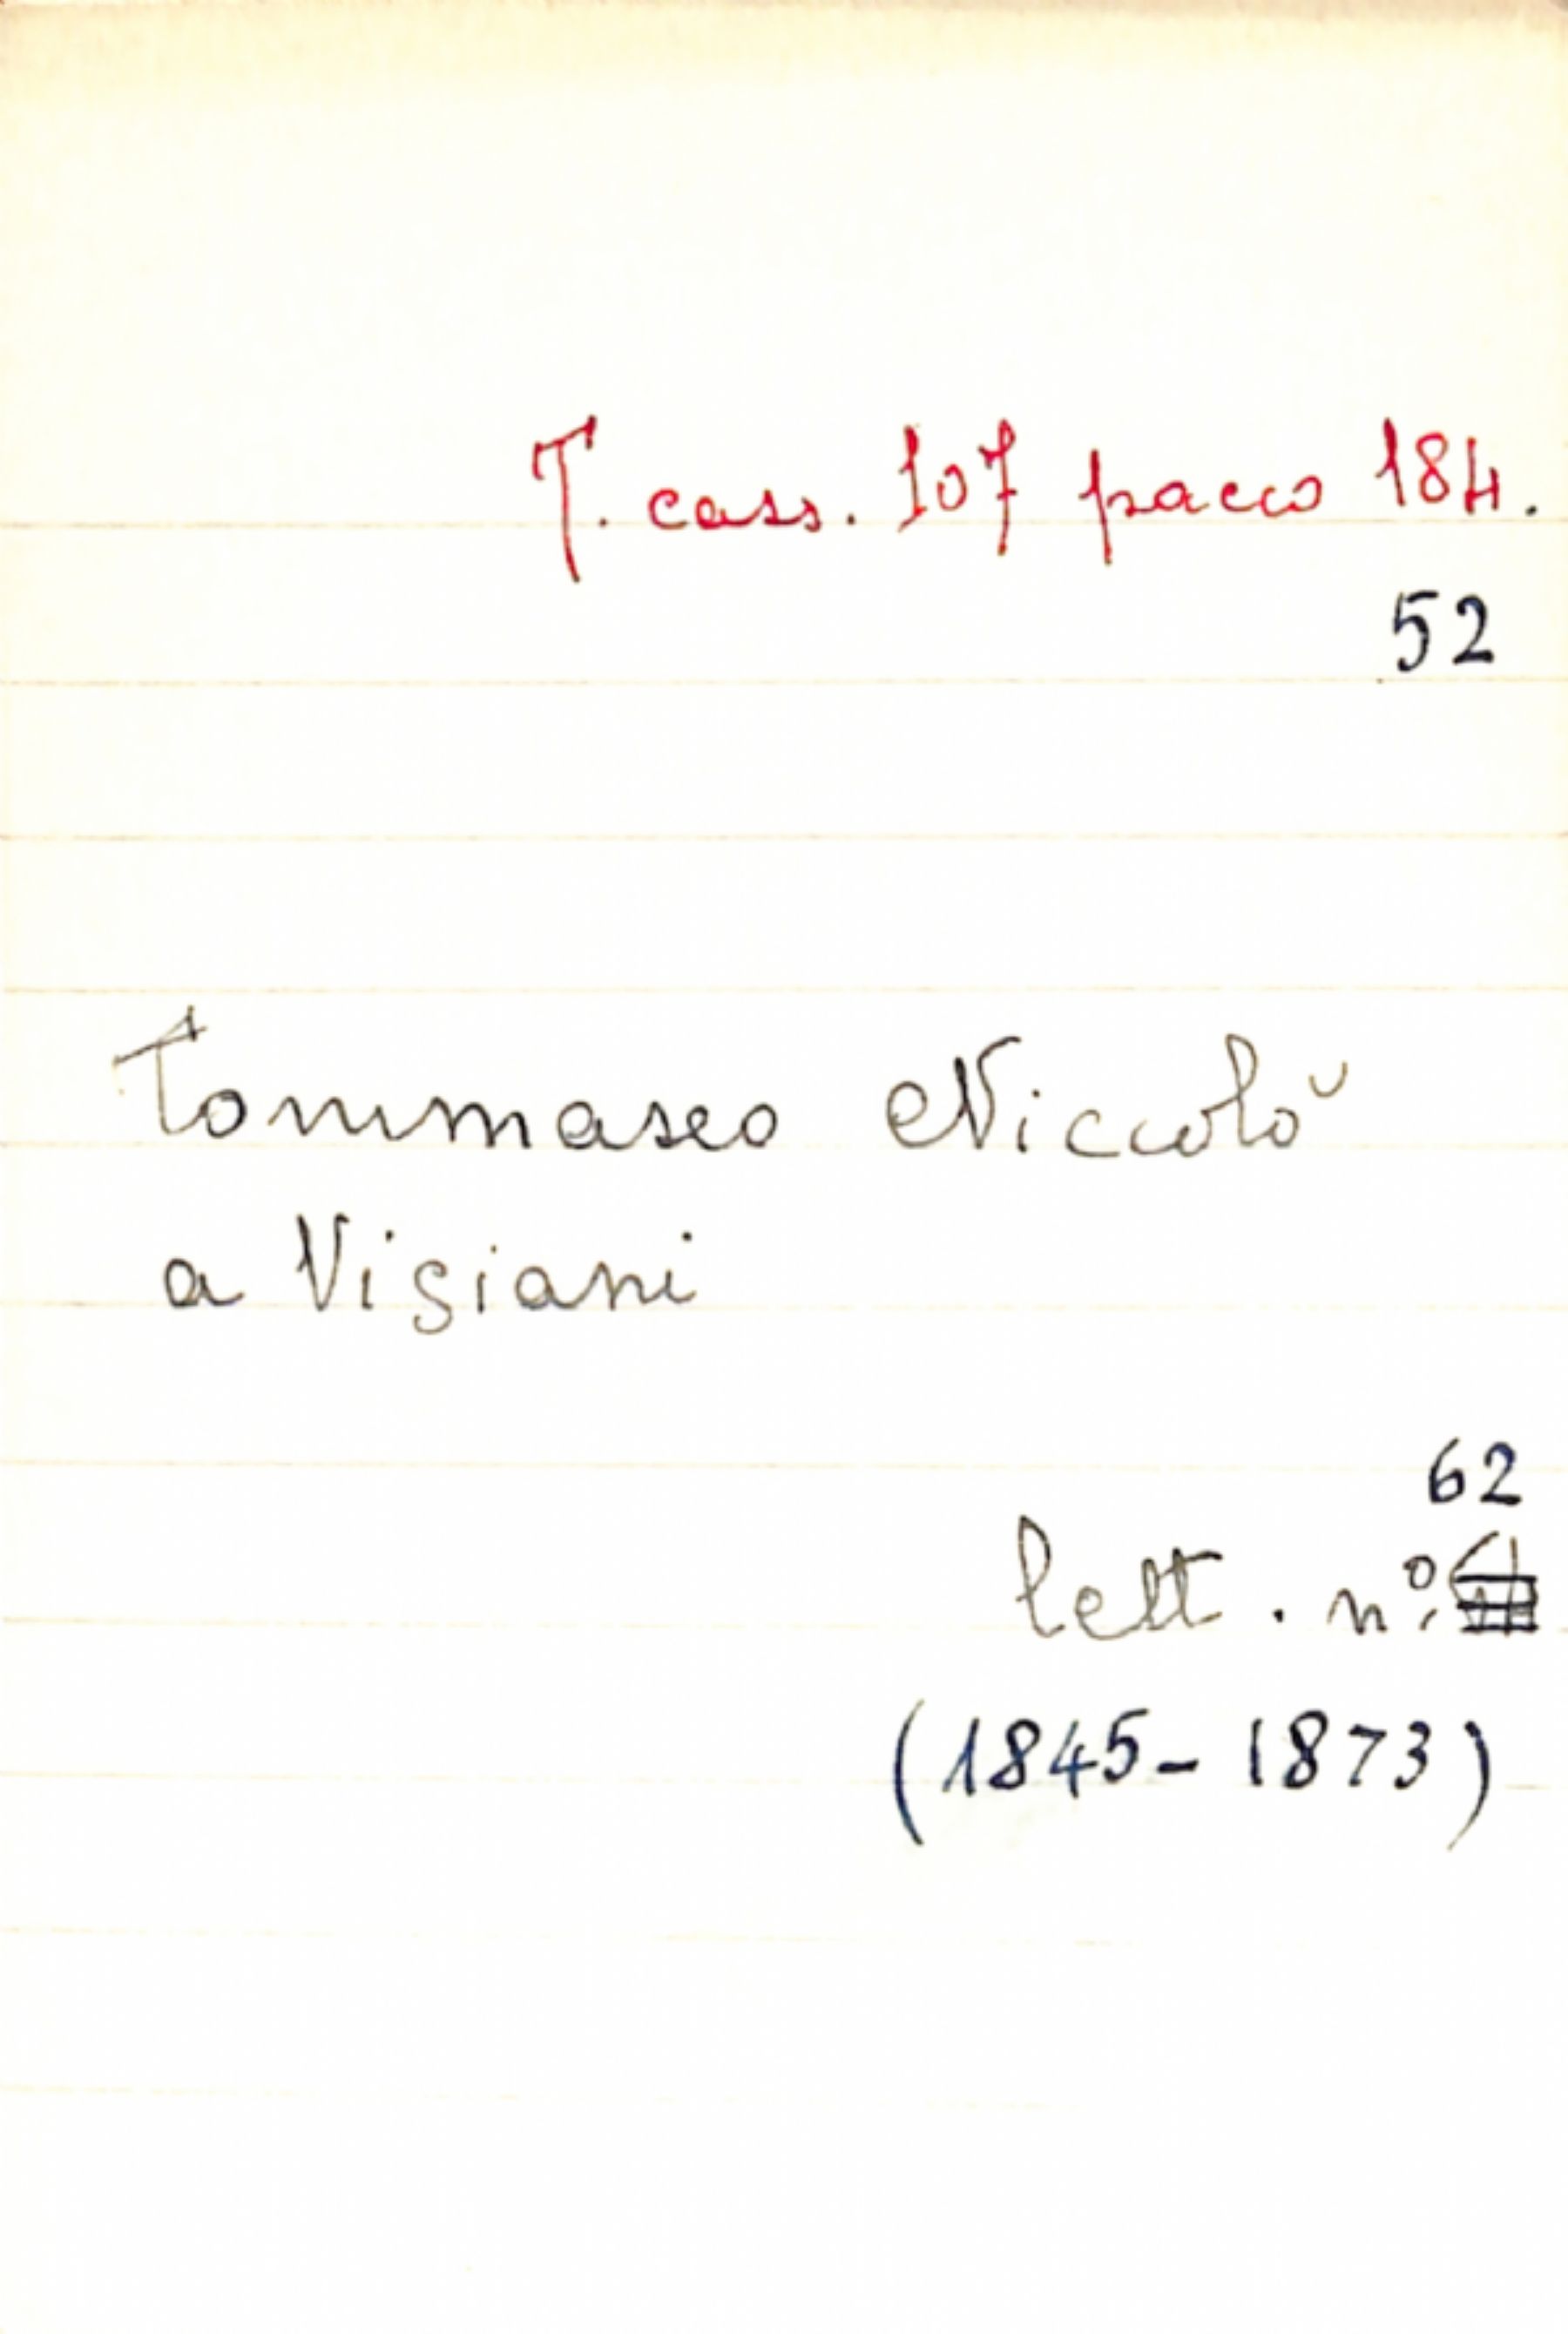 T. cass. 107 pacco 184.
52
Tommaseo Niccolò
a Visiani
62
lett. n°.
(1845-1873)